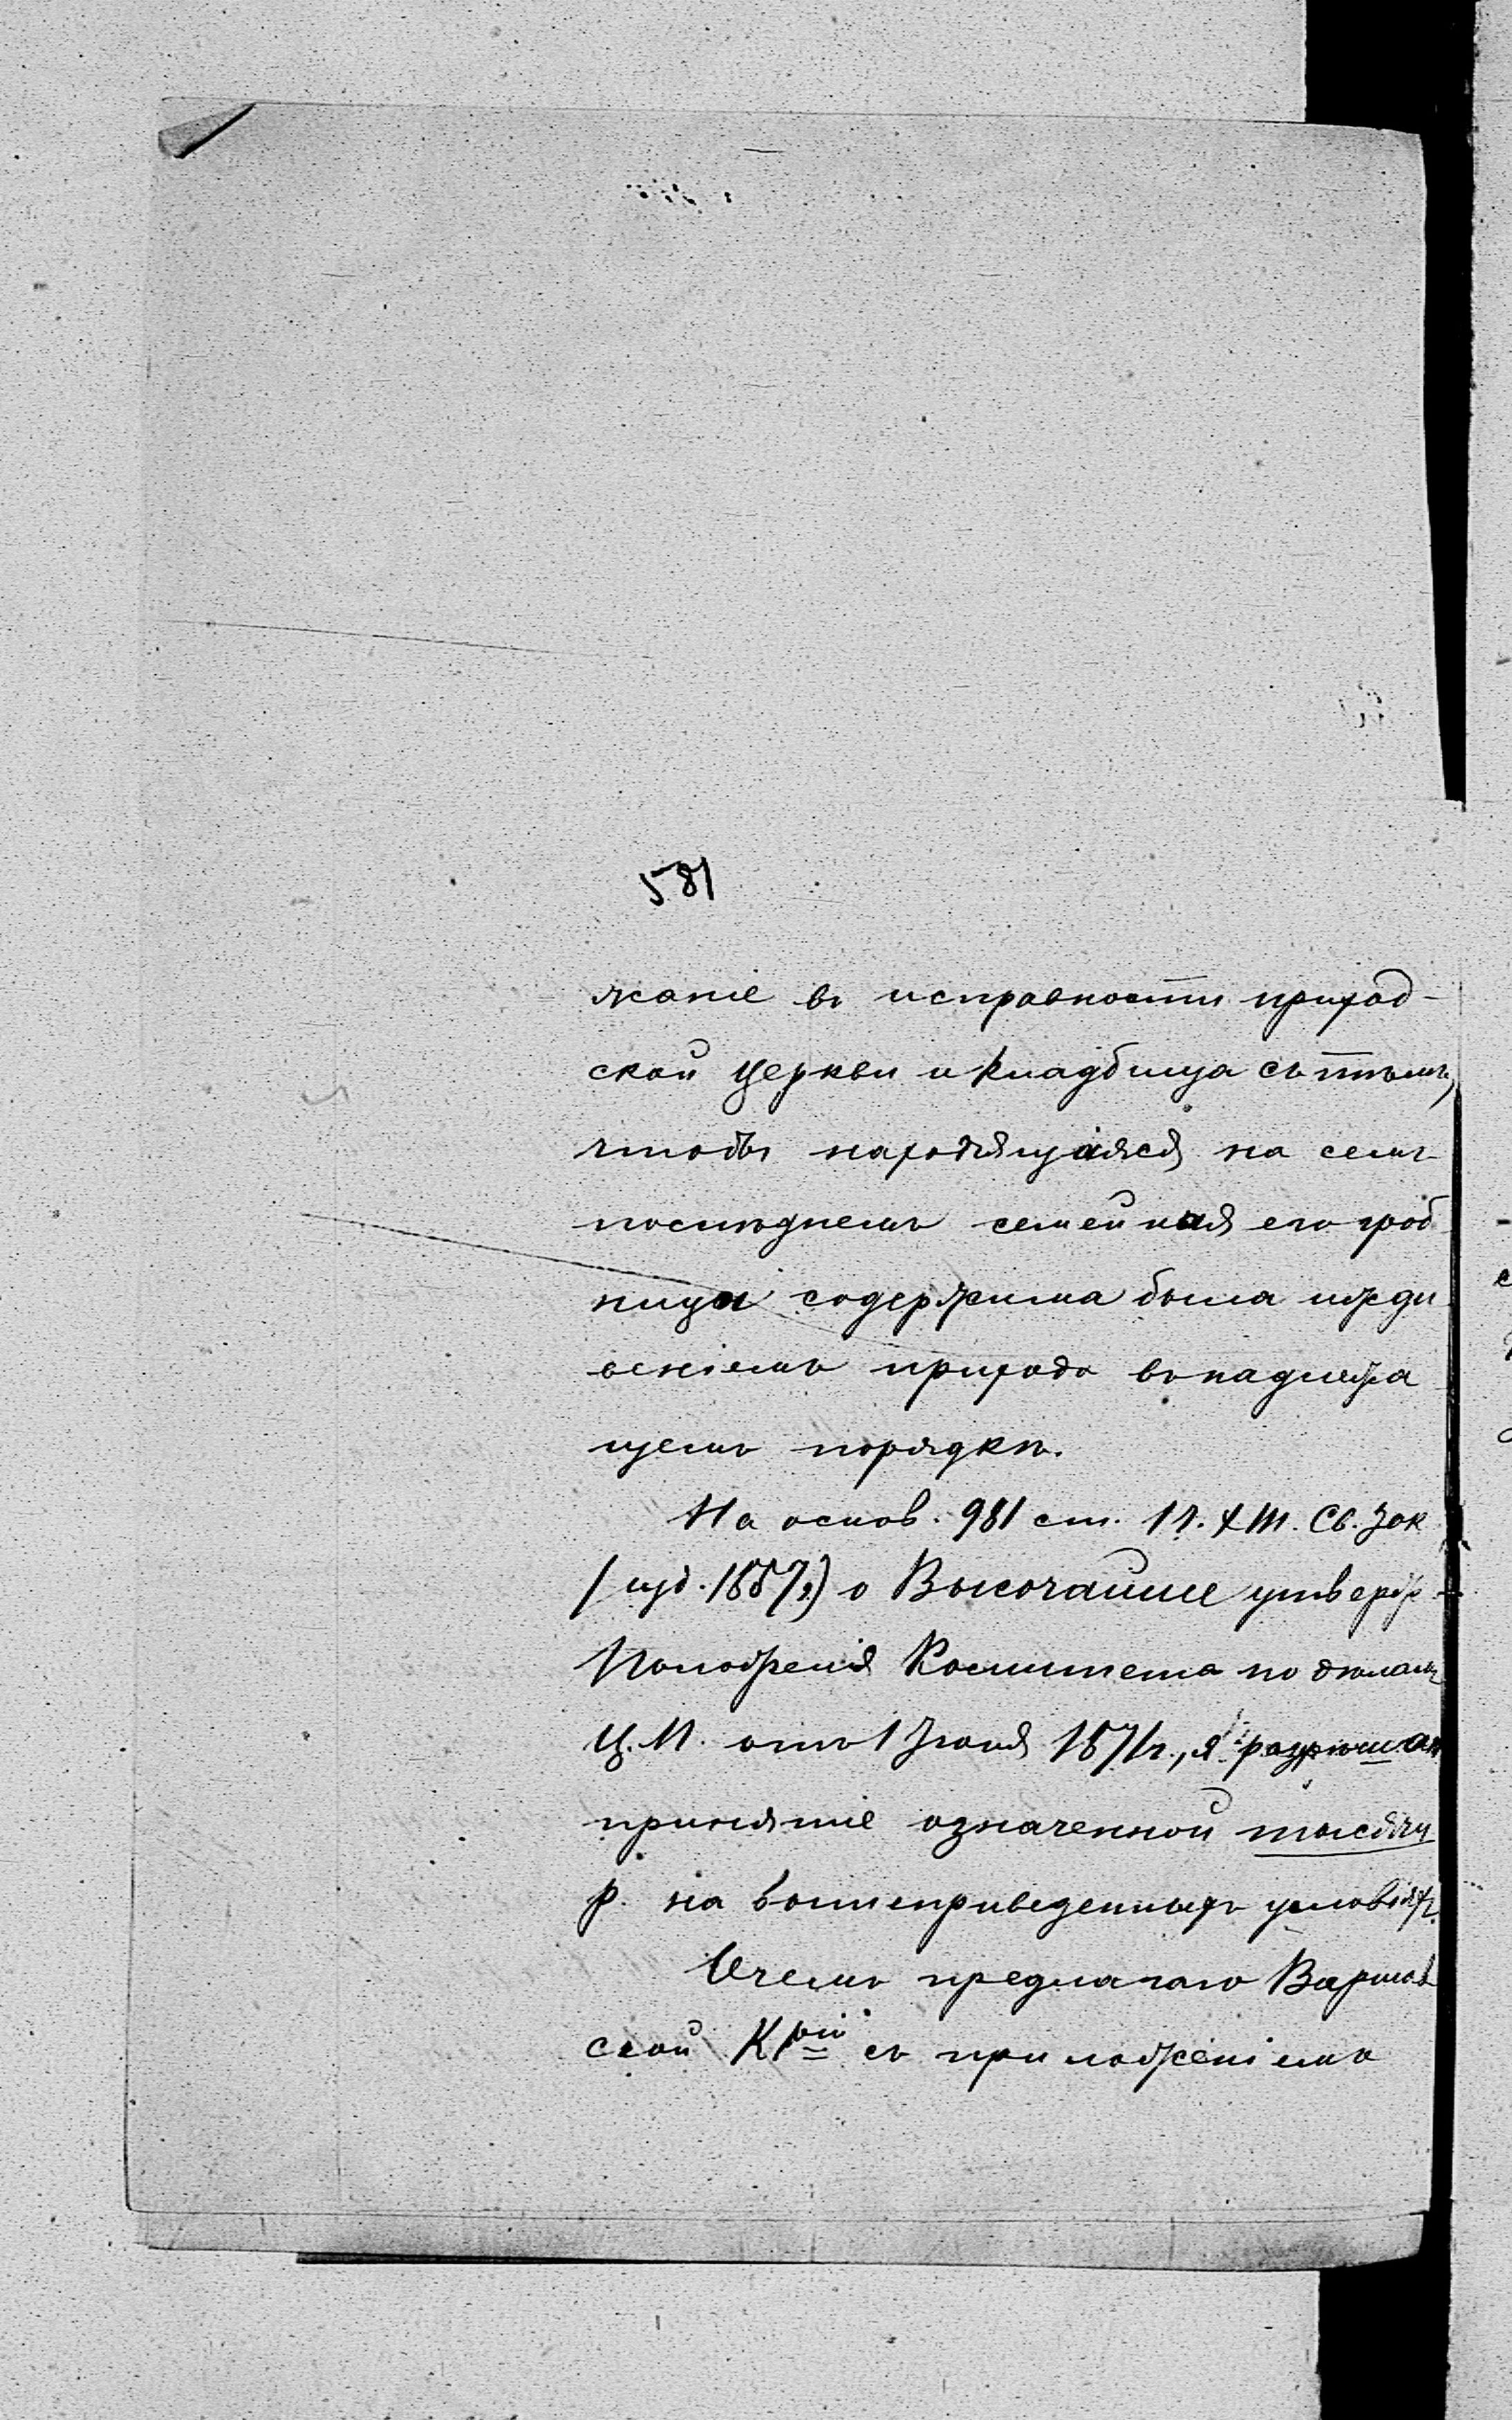 581
жаніе въ исправности приход-
ской церкви и кладбища съ тѣмъ,
чтобы находящаяся на семъ
послѣднемъ семейная его гроб
ница содержима была ижди
веніемъ прихода въ надлежа
щемъ порядкѣ.
На основ. 981 ст. 1 ч. X т. Св. Зак
(изд. 1887 г.) и Высочайше утвержд.
Положенія Комитета по дѣламъ
Ц. П. отъ 1 Іюня 1871 г., я разрѣшаю
принятіе означенной тысячи
р. на вышеприведенныхъ условіяхъ.
О чемъ предлагаю Варшав
ской К/ріи съ приложеніемъ